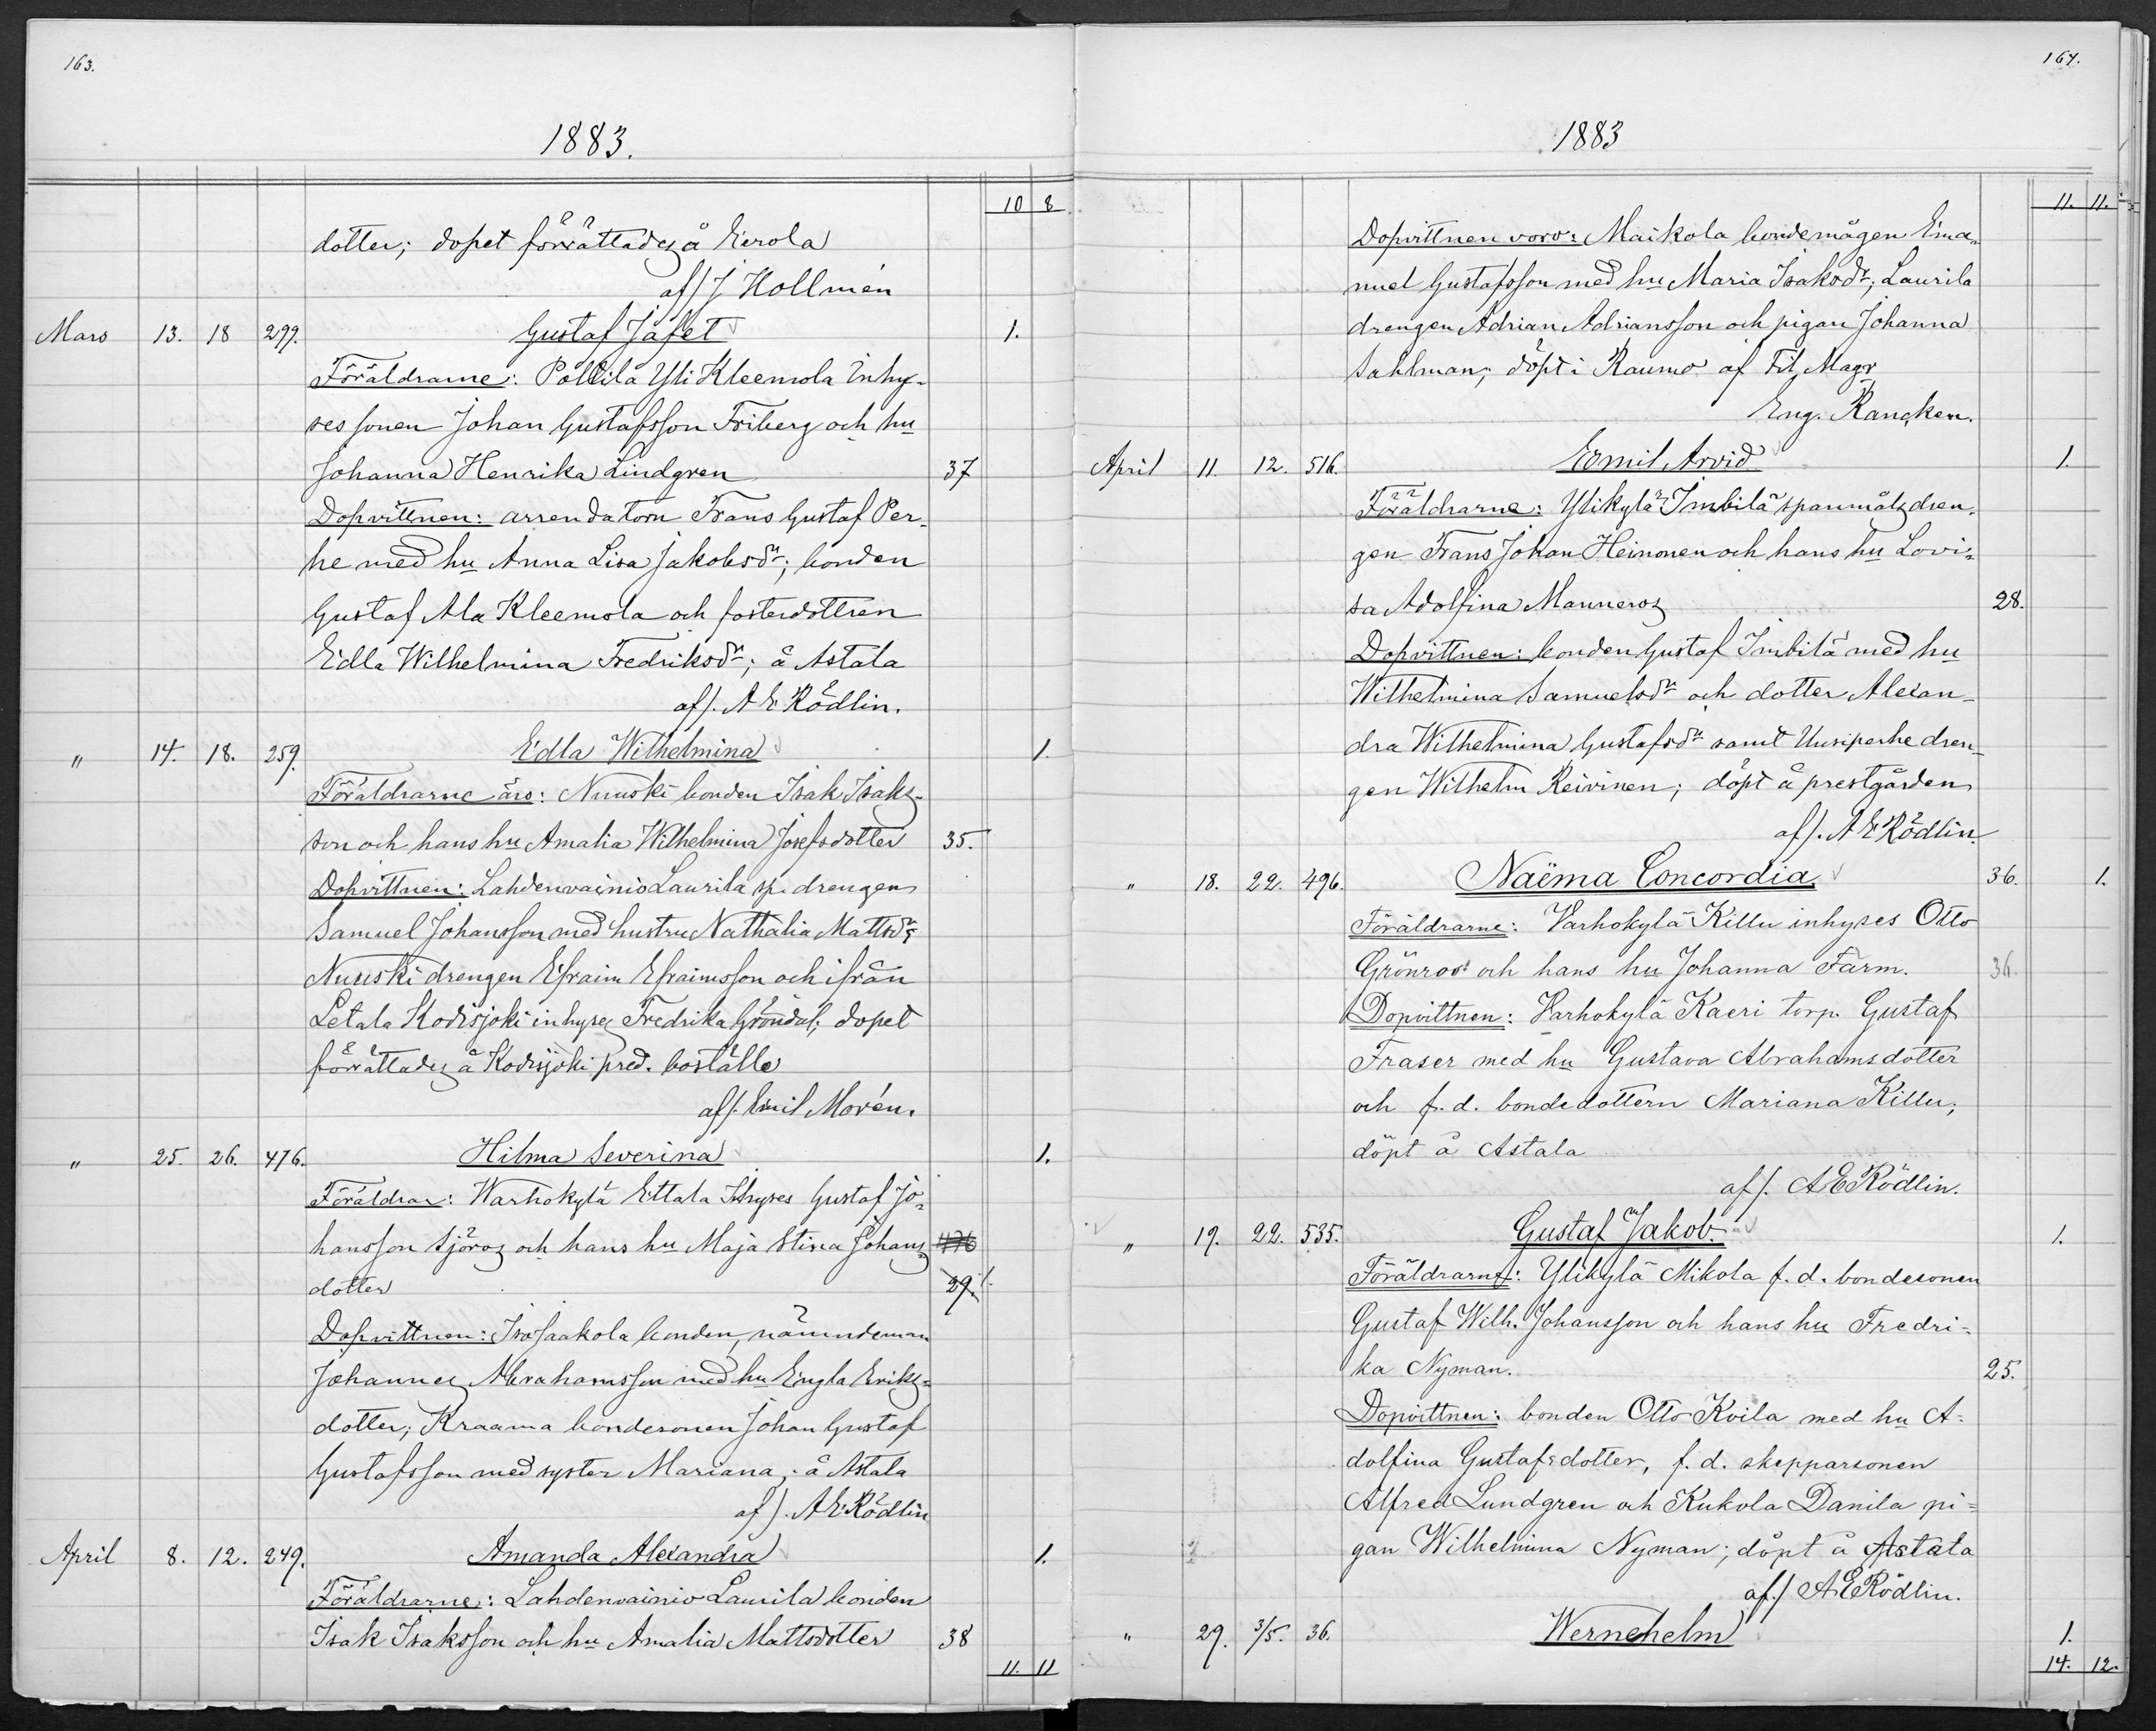 163.
1883.
10 8
dotter; dopet förrättades å Eerola
af/ J Hollmén
Mars 13. 18 299. Gustaf Jafet 1.
Föräldrarne: Pöllilä Yli Kleemola Inhy-
ses sonen Johan Gustafsson Friberg och hu
Johanna Henrika Lindgren 37
Dopvittnen: arrendatorn Frans Gustaf Per-
he med hu Anna Lisa Jakobsdr; bonden
Gustaf Ala Kleemola och fosterdottren
Edla Wilhelmina Fredriksdr; å Astala
af/. A E Rödlin.
" 14. 18. 259. Edla Wilhelmina 1.
Föräldrarne äro: Nuuski bonden Isak Isaks-
son och hans hu Amalia Wilhelmina Josefsdotter 35.
Dopvittnen: Lahdenvainio Laurila sp. drengen
Samuel Johansson med hustru Nathalia Mattsdr
Nuuski drengen Efraim Efraimsson och ifrån
Letala Kodisjoki inhyses Fredrika Gröndal; dopet
förrättades å Kodisjoki pred. boställe
af/. Emil Morén.
" 25. 26. 476. Hilma Severina 1.
Föräldrar: Warhokylä Ettala Ihyses Gustaf Jo-
hansson Sjöros och hans hu Maja Stina Johans 476
dotter 29.
Dopvittnen: Isosaakola bonden, nämndeman
Johannes Abrahamsson med hu Engla Eriks-
dotter; Kraama bondesonen Johan Gustaf
Gustafsson med syster Mariana; å Astala
af/. A E Rödlin
April 8. 12. 249. Amanda Alexandra 1.
Föräldrarne: Lahdenvainio Laurila bonden
Isak Isaksson och hu Amalia Mattsdotter 38
11. 11
164.
1883
11. 11.
Dopvittnen voro: Maikola bondemågen Ema-
nuel Gustafsson med hu Maria Isaksdr; Laurila
drengen Adrian Adriansson och pigan Johanna
Sahlman; döpt i Raumo af Fil. Magr
Eng. Rancken.
April 11. 12. 516. Eemil Arvid 1.
Föräldrarne: Ylikylä Imbilä spanmålsdren-
gen Frans Johan Heinonen och hans hu Lovi-
sa Adolfina Manneros 28.
Dopvittnen: bonden Gustaf Imbilä med hu
Wilhelmina Samuelsdr och dotter Alexan-
dra Wilhelmina Gustafsdr samt Uusiperhe dren-
gen Wilhelm Reivinen; döpt å prestgården
af/. A E Rödlin.
" 18. 22. 496. Naëma Concordia 36. 1.
Föräldrarne: Varhokylä Killu inhyses Otto
Grönroos och hans hu Johanna Färm. 36.
Dopvittnen: Varhokylä Kaeri torp. Gustaf
Fraser med hu Gustava Abrahamsdotter
och f.d. bondedottern Mariana Killu;
döpt å Astala
af/. A E Rödlin.
" 19. 22. 535. Gustaf Jakob. 1.
Föräldrarne: Ylikylä Mikola f.d. bondesonen
Gustaf Wilh. Johansson och hans hu Fredri-
ka Nyman. 25.
Dopvittnen: bonden Otto Kvila med hu A-
dolfina Gustafsdotter, f.d. skepparsonen
Alfred Lundgren och Kukola Danila pi-
gan Wilhelmina Nyman; döpt å Astala
af/ A E Rödlin.
" 29. 3/5. 36. Wernehelm 1.
14. 12.